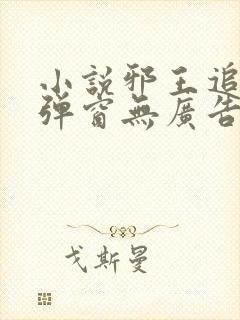 小說邪王追
彈窗無廣告
戈斯曼